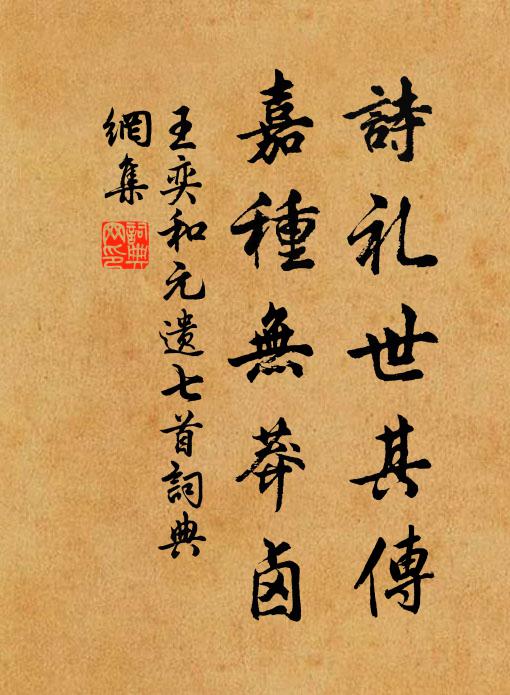 詩礼世其傳
嘉種無莽卤
王奕和元遺七首詞典
網集
詞典網印